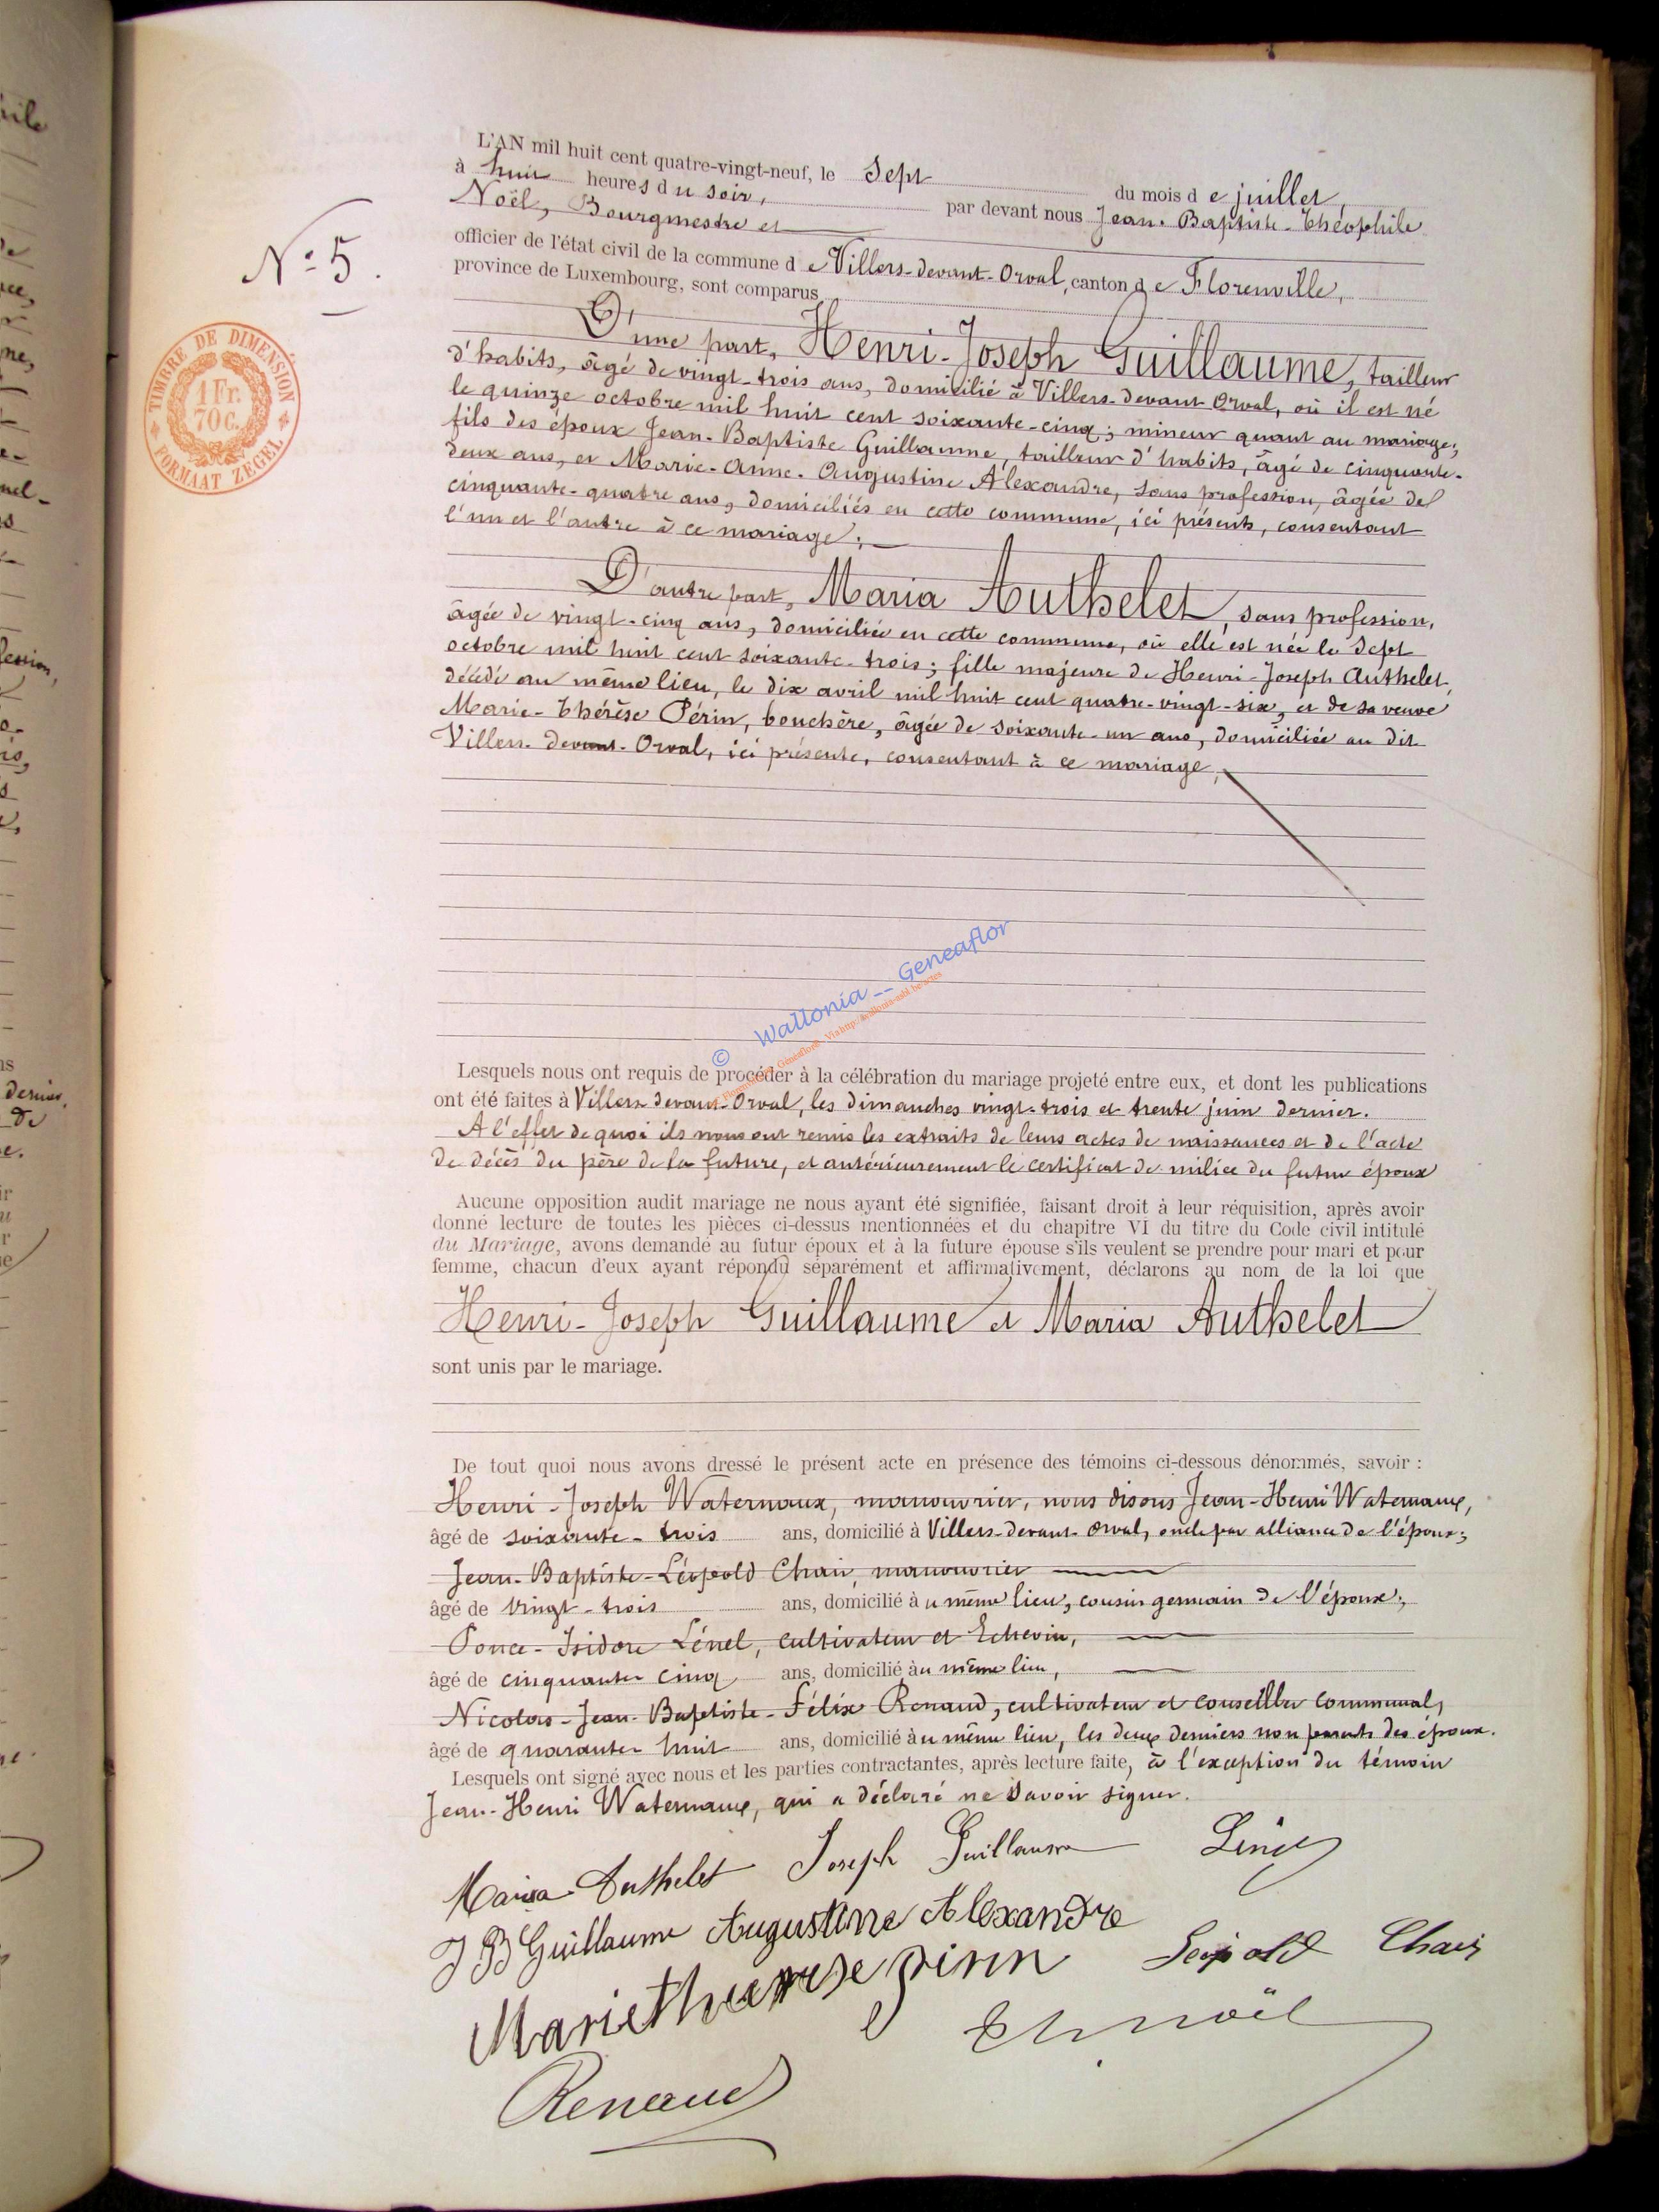 L'AN mil huit cent quatre-vingt-neuf, le Sept du mois de juillet,
à huit heures du soir, par devant nous Jean-Baptiste-Théophile
Noël, Bourgmestre et
officier de l'état civil de la commune de Villers-devant-Orval, canton de Florenville,
province de Luxembourg, sont comparus
N° 5.
TIMBRE DE DIMENSION
1 Fr.
70 C.
FORMAAT ZEGEL
D'une part, Henri-Joseph Guillaume, tailleur
d'habits, âgé de vingt-trois ans, domicilié à Villers-devant-Orval, où il est né
le quinze octobre mil huit cent soixante-cinq; mineur quant au mariage;
fils des époux Jean-Baptiste Guillaume, tailleur d'habits, âgé de cinquante-
deux ans, et Marie-Anne-Augustine Alexandre, sans profession, âgée de
cinquante-quatre ans, domiciliés en cette commune, ici présents, consentant
l'un et l'autre à ce mariage;
D'autre part, Maria Authelet, sans profession,
âgée de vingt-cinq ans, domiciliée en cette commune, où elle est née le sept
octobre mil huit cent soixante-trois; fille majeure de Henri-Joseph Authelet,
décédé au même lieu, le dix avril mil huit cent quatre-vingt-six, et de sa veuve
Marie-Thérèse Périn, bouchère, âgée de soixante-un ans, domiciliée au dit
Villers-devant-Orval, ici présente, consentant à ce mariage,
© Wallonia -- Geneaflor
Lesquels nous ont requis de procéder à la célébration du mariage projeté entre eux, et dont les publications
ont été faites à Villers-devant-Orval, les dimanches vingt-trois et trente juin dernier.
A l'effet de quoi ils nous ont remis les extraits de leurs actes de naissances et de l'acte
de décès du père de la future, et antérieurement le certificat de milice du futur époux
Aucune opposition audit mariage ne nous ayant été signifiée, faisant droit à leur réquisition, après avoir
donné lecture de toutes les pièces ci-dessus mentionnées et du chapitre VI du titre du Code civil intitulé
du Mariage, avons demandé au futur époux et à la future épouse s'ils veulent se prendre pour mari et pour
femme, chacun d'eux ayant répondu séparément et affirmativement, déclarons au nom de la loi que
Henri-Joseph Guillaume et Maria Authelet
sont unis par le mariage.
De tout quoi nous avons dressé le présent acte en présence des témoins ci-dessous dénommés, savoir :
Henri-Joseph Waternaux, manouvrier, nous disons Jean-Henri Waternaux,
âgé de soixante-trois ans, domicilié à Villers-devant-Orval, oncle par alliance de l'époux;
Jean-Baptiste-Léopold Chais, manouvrier
âgé de vingt-trois ans, domicilié au même lieu, cousin germain de l'époux;
Ponce-Isidore Lénel, cultivateur et Echevin,
âgé de cinquante cinq ans, domicilié au même lieu,
Nicolas-Jean-Baptiste-Félix Renaud, cultivateur et conseiller communal,
âgé de quarante huit ans, domicilié au même lieu, les deux derniers non parents des époux.
Lesquels ont signé avec nous et les parties contractantes, après lecture faite, à l'exception du témoin
Jean-Henri Waternaux, qui a déclaré ne savoir signer.
Maria Authelet Joseph Guillaume
J B Guillaume Augustine Alexandre
Léopold Chais
Th Noël
Renaud